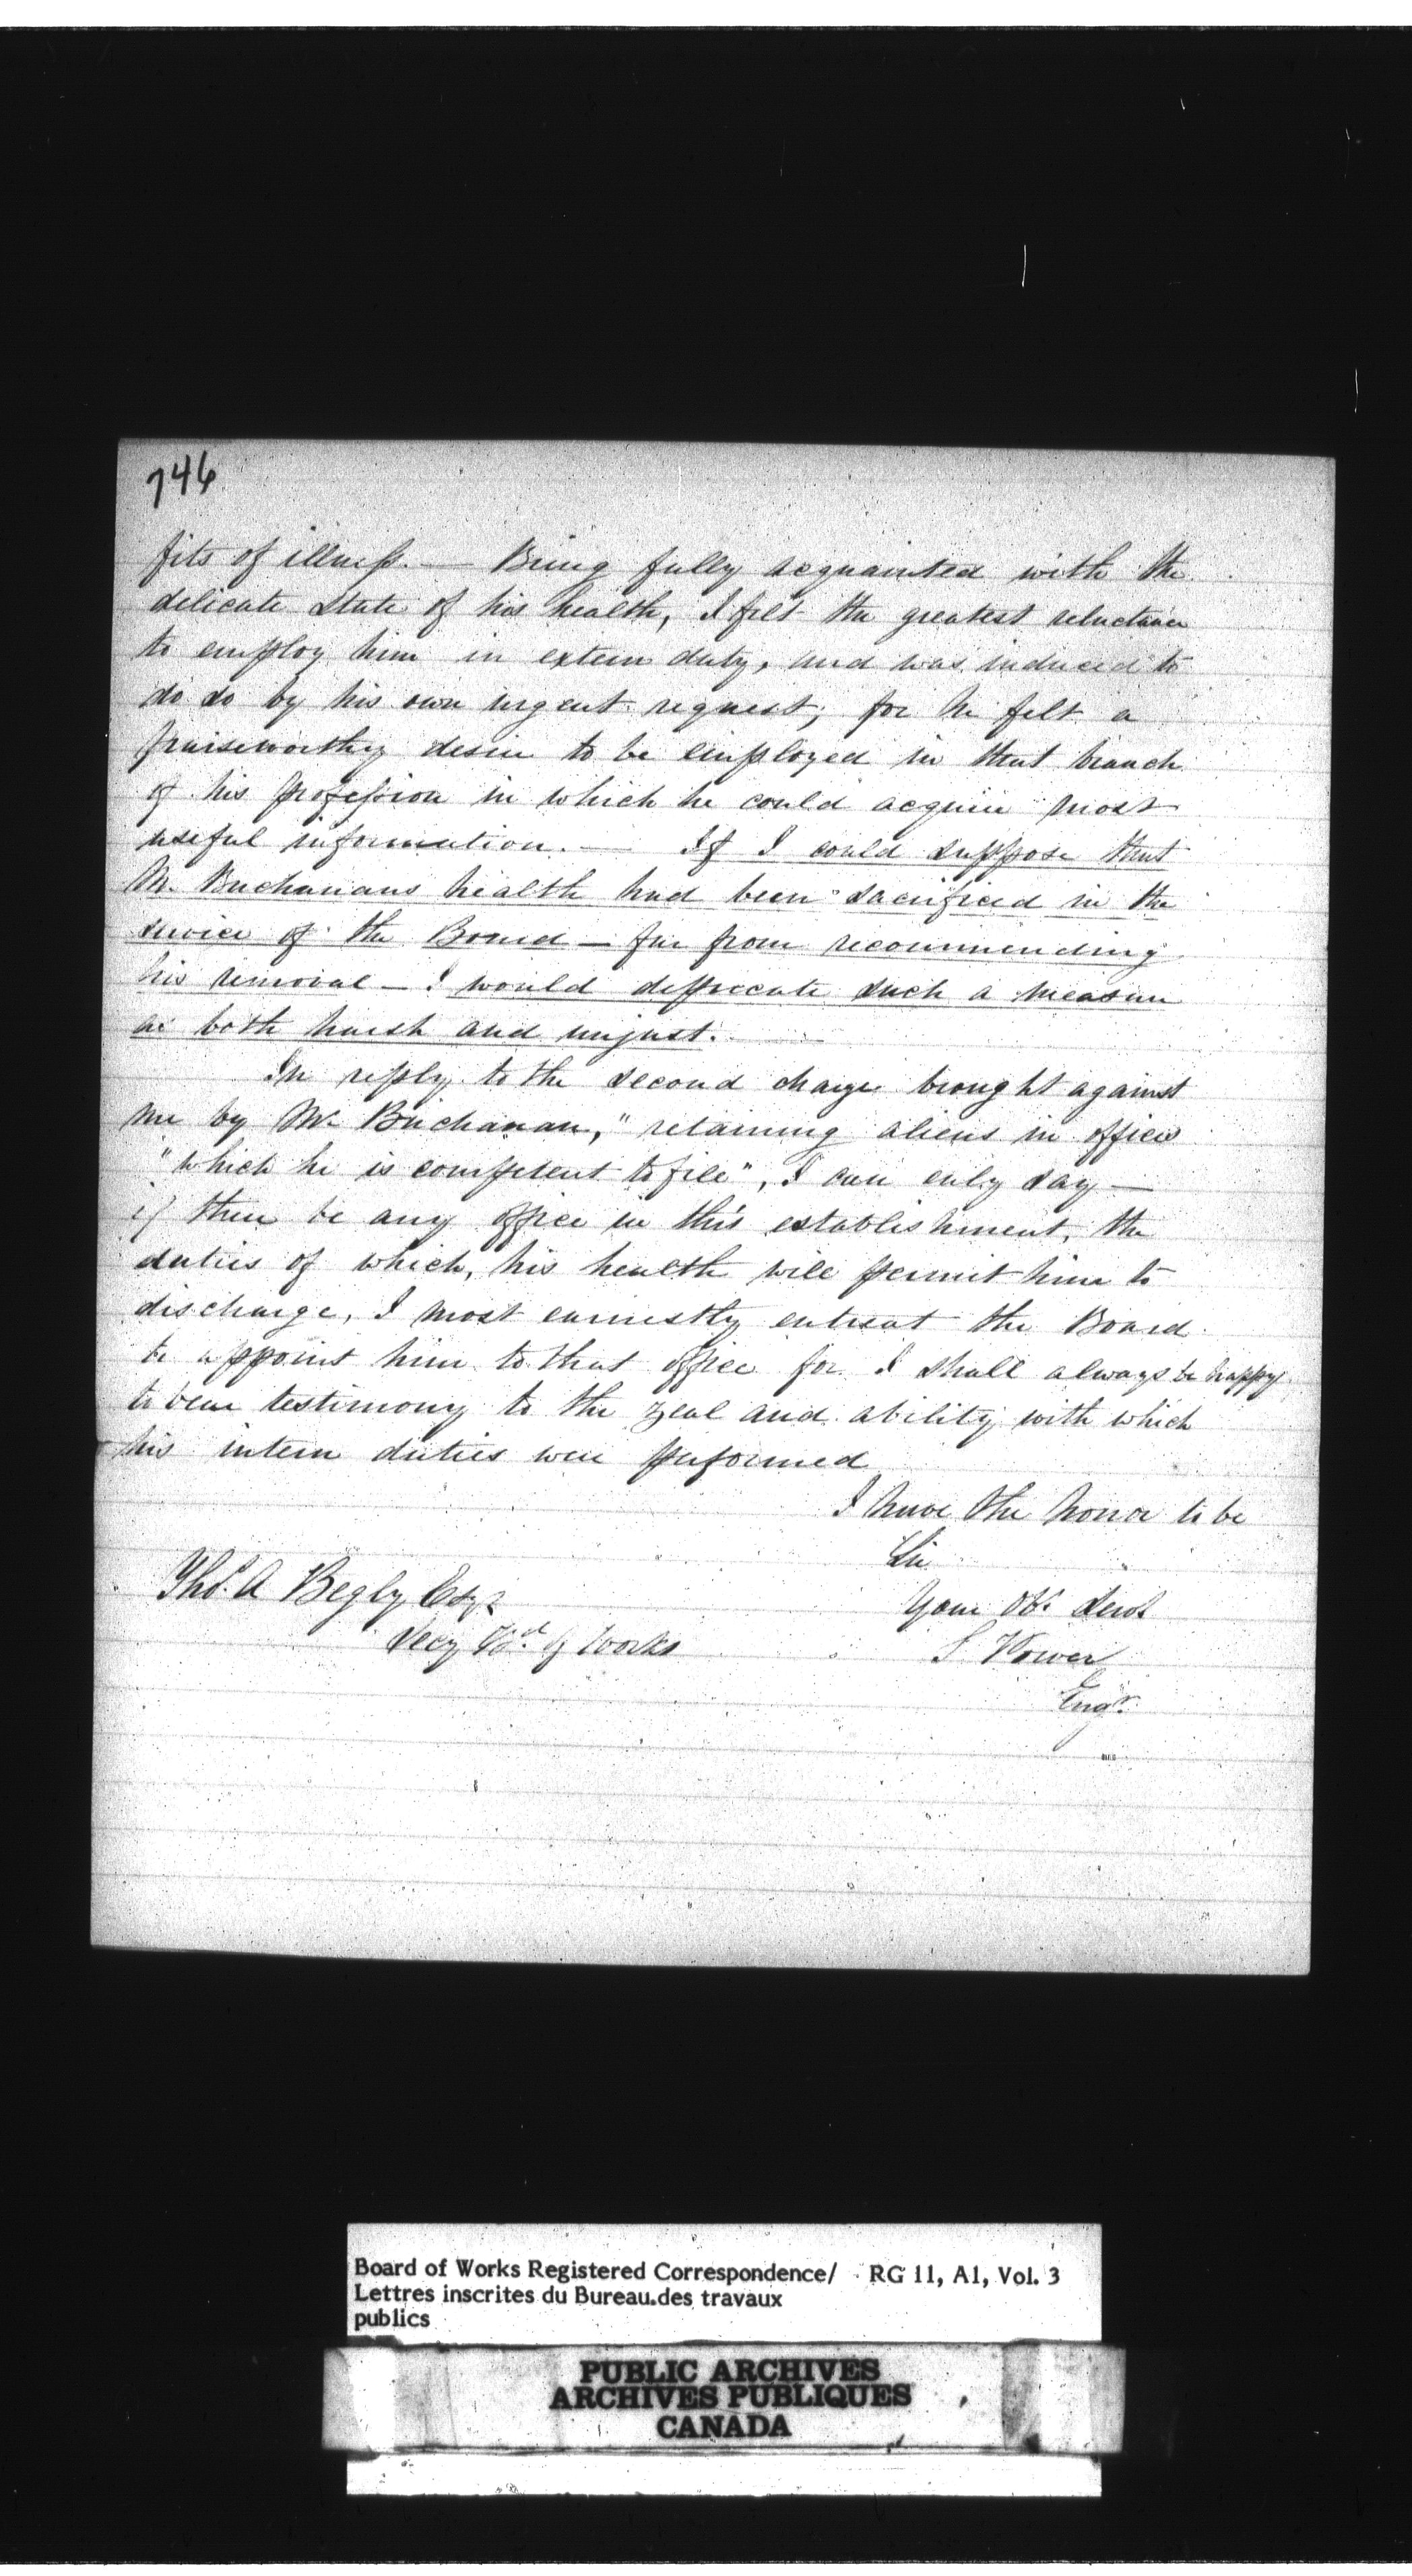 746
fits of illness. — Being fully acquainted with the
delicate state of his health, I felt the greatest reluctance
to employ him in extern duty, and was induced to
do so by his own urgent request; for he felt a
praiseworthy desire to be employed in that branch
of his profession in which he could acquire most
useful information. — If I could suppose that
Mr. Buchanans health had been sacrificed in the
service of the Board — far from recommending
his removal — I would deprecate such a measure
as both harsh and unjust. —
In reply to the second charge brought against
me by Mr. Buchanan, "retaining aliens in offices
"which he is competent to fill", I can only say —
if there be any office in this establishment, the
duties of which, his health will permit him to
discharge, I most earnestly entreat the Board
to appoint him to that office for I shall always be happy
to bear testimony to the zeal and ability with which
his intern duties were performed
I have the honor to be
Sir
Your Obt Servt
S Power
Engr.
Thos. A Begly Esqr
Secy Bd of Works
Board of Works Registered Correspondence/ RG 11, A1, Vol. 3
Lettres inscrites du Bureau des travaux
publics
PUBLIC ARCHIVES
ARCHIVES PUBLIQUES
CANADA